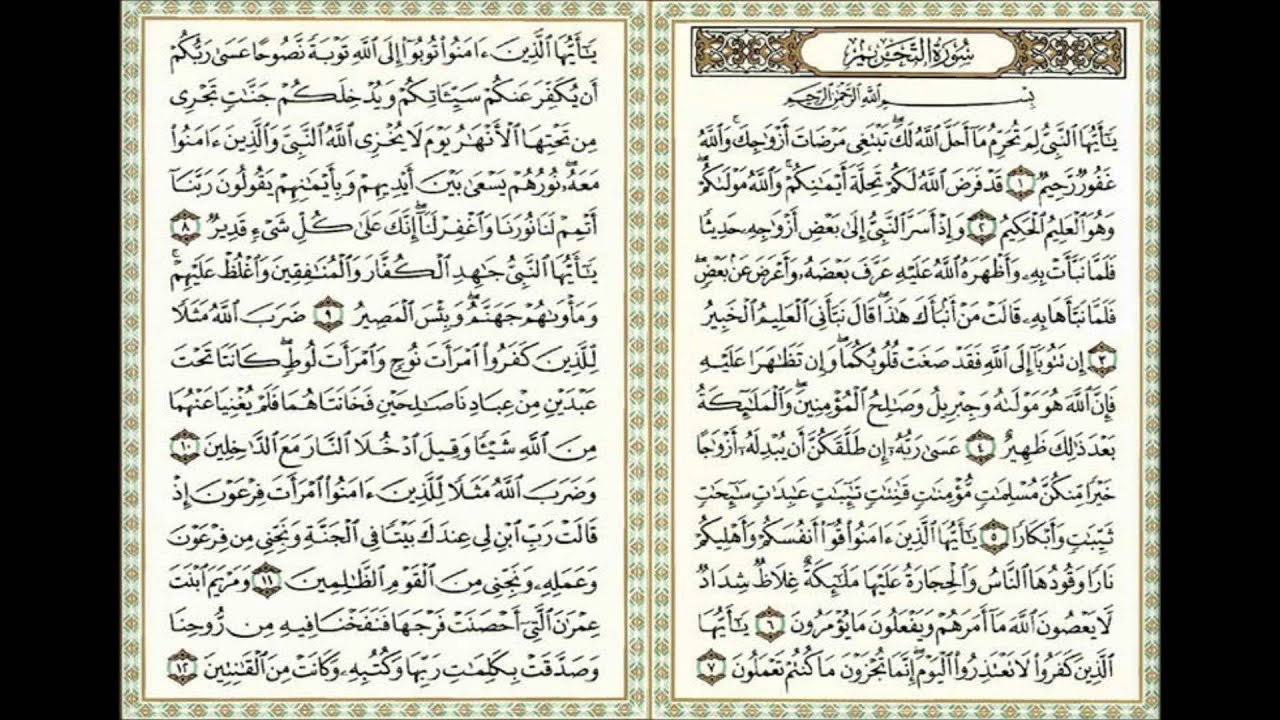 سُورَةُ التَّحْرِيمِ
بِسْمِ اللَّهِ الرَّحْمَٰنِ الرَّحِيمِ
يَٰٓأَيُّهَا النَّبِيُّ لِمَ تُحَرِّمُ مَآ أَحَلَّ اللَّهُ لَكَ ۖ تَبْتَغِي مَرْضَاتَ أَزْوَٰجِكَ ۚ وَاللَّهُ
غَفُورٌ رَّحِيمٌ ١ قَدْ فَرَضَ اللَّهُ لَكُمْ تَحِلَّةَ أَيْمَٰنِكُمْ ۚ وَاللَّهُ مَوْلَىٰكُمْ ۖ
وَهُوَ الْعَلِيمُ الْحَكِيمُ ٢ وَإِذْ أَسَرَّ النَّبِيُّ إِلَىٰ بَعْضِ أَزْوَٰجِهِۦ حَدِيثًا
فَلَمَّا نَبَّأَتْ بِهِۦ وَأَظْهَرَهُ اللَّهُ عَلَيْهِ عَرَّفَ بَعْضَهُۥ وَأَعْرَضَ عَنۢ بَعْضٍ ۖ
فَلَمَّا نَبَّأَهَا بِهِۦ قَالَتْ مَنْ أَنۢبَأَكَ هَٰذَا ۖ قَالَ نَبَّأَنِيَ الْعَلِيمُ الْخَبِيرُ
٣ إِن تَتُوبَآ إِلَى اللَّهِ فَقَدْ صَغَتْ قُلُوبُكُمَا ۖ وَإِن تَظَٰهَرَا عَلَيْهِ
فَإِنَّ اللَّهَ هُوَ مَوْلَىٰهُ وَجِبْرِيلُ وَصَٰلِحُ الْمُؤْمِنِينَ ۖ وَالْمَلَٰٓئِكَةُ
بَعْدَ ذَٰلِكَ ظَهِيرٌ ٤ عَسَىٰ رَبُّهُۥٓ إِن طَلَّقَكُنَّ أَن يُبْدِلَهُۥٓ أَزْوَٰجًا
خَيْرًا مِّنكُنَّ مُسْلِمَٰتٍ مُّؤْمِنَٰتٍ قَٰنِتَٰتٍ تَٰٓئِبَٰتٍ عَٰبِدَٰتٍ سَٰٓئِحَٰتٍ
ثَيِّبَٰتٍ وَأَبْكَارًا ٥ يَٰٓأَيُّهَا الَّذِينَ ءَامَنُوا قُوٓا أَنفُسَكُمْ وَأَهْلِيكُمْ
نَارًا وَقُودُهَا النَّاسُ وَالْحِجَارَةُ عَلَيْهَا مَلَٰٓئِكَةٌ غِلَاظٌ شِدَادٌ
لَّا يَعْصُونَ اللَّهَ مَآ أَمَرَهُمْ وَيَفْعَلُونَ مَا يُؤْمَرُونَ ٦ يَٰٓأَيُّهَا
الَّذِينَ كَفَرُوا لَا تَعْتَذِرُوا الْيَوْمَ ۖ إِنَّمَا تُجْزَوْنَ مَا كُنتُمْ تَعْمَلُونَ ٧
يَٰٓأَيُّهَا الَّذِينَ ءَامَنُوا تُوبُوٓا إِلَى اللَّهِ تَوْبَةً نَّصُوحًا عَسَىٰ رَبُّكُمْ
أَن يُكَفِّرَ عَنكُمْ سَيِّـَٔاتِكُمْ وَيُدْخِلَكُمْ جَنَّٰتٍ تَجْرِي
مِن تَحْتِهَا الْأَنْهَٰرُ يَوْمَ لَا يُخْزِي اللَّهُ النَّبِيَّ وَالَّذِينَ ءَامَنُوا
مَعَهُۥ ۖ نُورُهُمْ يَسْعَىٰ بَيْنَ أَيْدِيهِمْ وَبِأَيْمَٰنِهِمْ يَقُولُونَ رَبَّنَآ
أَتْمِمْ لَنَا نُورَنَا وَاغْفِرْ لَنَآ ۖ إِنَّكَ عَلَىٰ كُلِّ شَيْءٍ قَدِيرٌ ٨
يَٰٓأَيُّهَا النَّبِيُّ جَٰهِدِ الْكُفَّارَ وَالْمُنَٰفِقِينَ وَاغْلُظْ عَلَيْهِمْ ۚ
وَمَأْوَىٰهُمْ جَهَنَّمُ ۖ وَبِئْسَ الْمَصِيرُ ٩ ضَرَبَ اللَّهُ مَثَلًا
لِّلَّذِينَ كَفَرُوا امْرَأَتَ نُوحٍ وَامْرَأَتَ لُوطٍ ۖ كَانَتَا تَحْتَ
عَبْدَيْنِ مِنْ عِبَادِنَا صَٰلِحَيْنِ فَخَانَتَاهُمَا فَلَمْ يُغْنِيَا عَنْهُمَا
مِنَ اللَّهِ شَيْـًٔا وَقِيلَ ادْخُلَا النَّارَ مَعَ الدَّٰخِلِينَ ١٠
وَضَرَبَ اللَّهُ مَثَلًا لِّلَّذِينَ ءَامَنُوا امْرَأَتَ فِرْعَوْنَ إِذْ
قَالَتْ رَبِّ ابْنِ لِي عِندَكَ بَيْتًا فِي الْجَنَّةِ وَنَجِّنِي مِن فِرْعَوْنَ
وَعَمَلِهِۦ وَنَجِّنِي مِنَ الْقَوْمِ الظَّٰلِمِينَ ١١ وَمَرْيَمَ ابْنَتَ
عِمْرَٰنَ الَّتِيٓ أَحْصَنَتْ فَرْجَهَا فَنَفَخْنَا فِيهِ مِن رُّوحِنَا
وَصَدَّقَتْ بِكَلِمَٰتِ رَبِّهَا وَكُتُبِهِۦ وَكَانَتْ مِنَ الْقَٰنِتِينَ ١٢